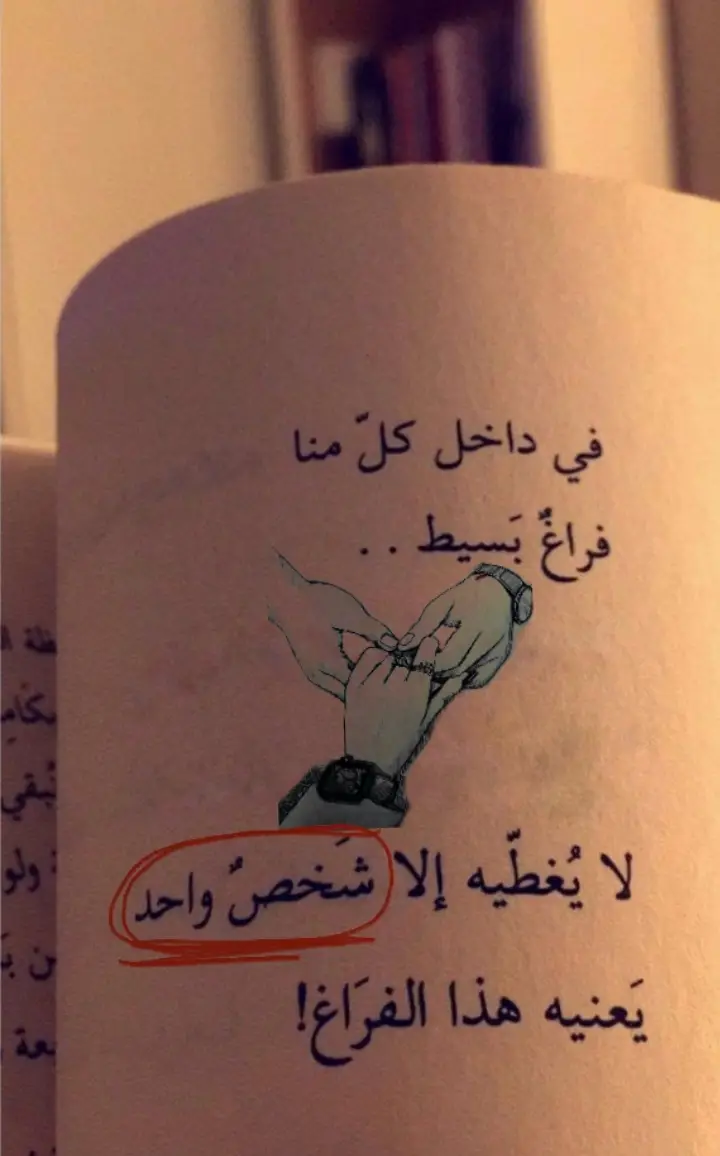 في داخل كلّ منا
فراغٌ بَسيط ..
لا يُغطّيه إلا شَخصٌ واحد
يَعنيه هذا الفرَاغ!